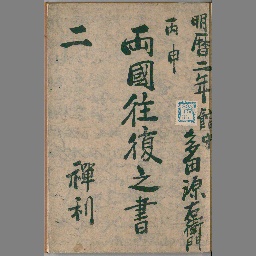 明暦二年
館守
多田源右衛門
丙申
両國往復之書
二
禪利